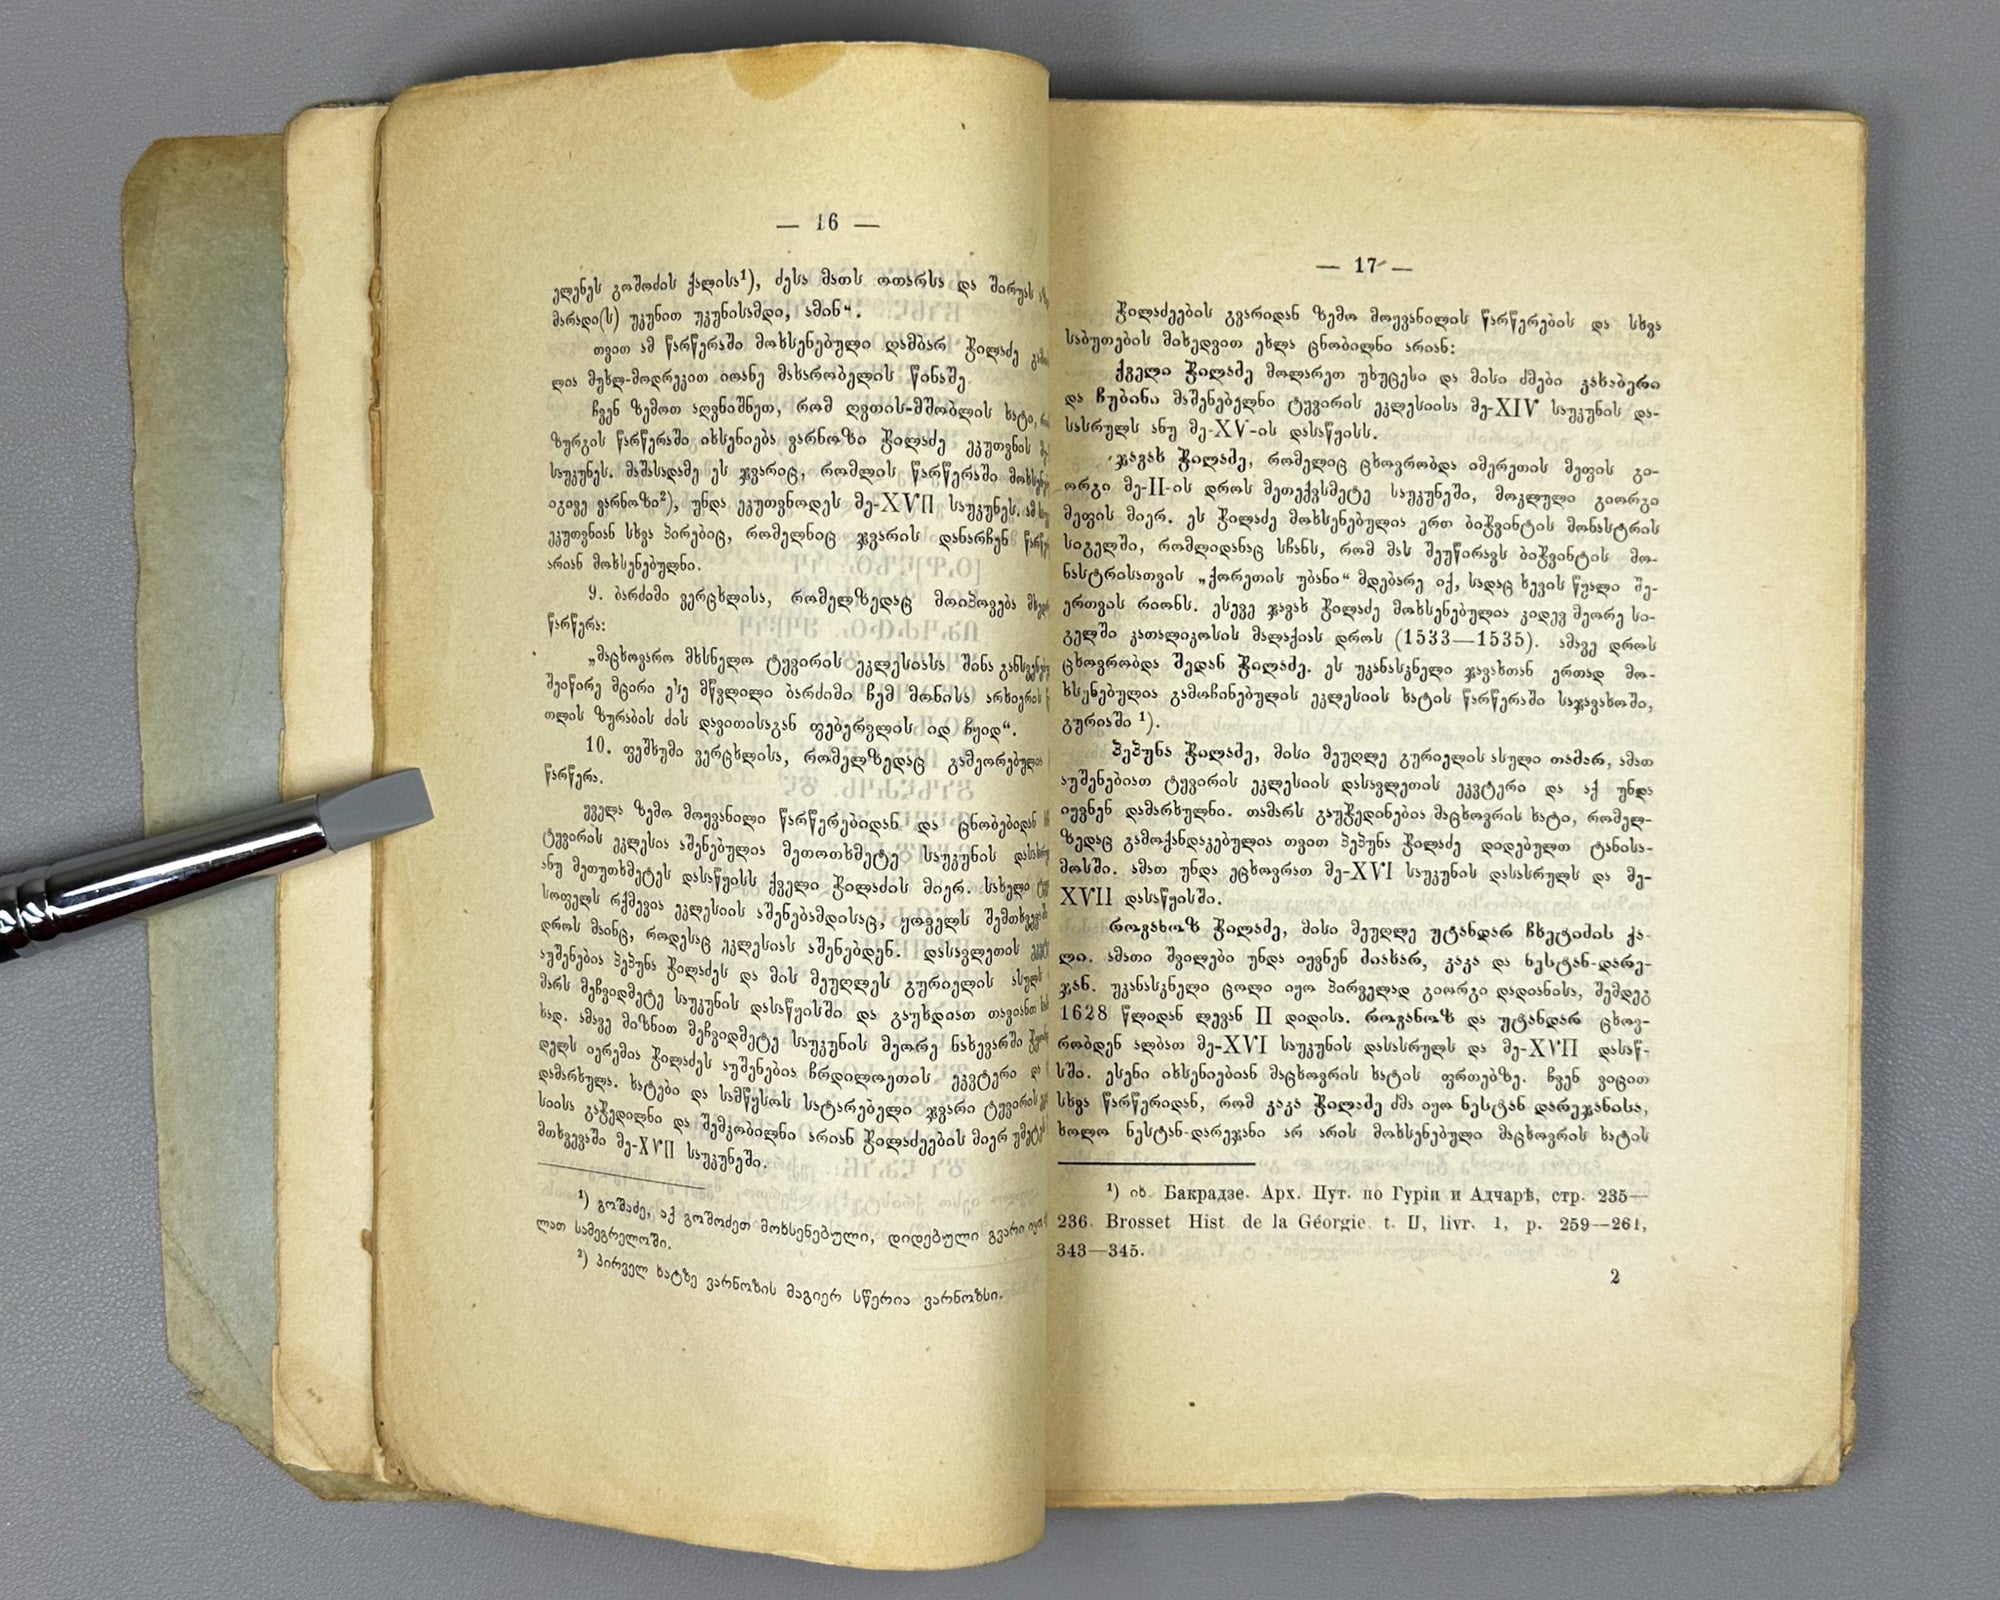 — 16 —
ელენეს გოშოძის ქალისა¹), ძესა მათს ოთარსა და შირუას
მარადი(ს) უკუნით უკუნისამდი, ამინ“.
თვით ამ წარწერაში მოხსენებული ღამბარ ჭილაძე
ლია მუხლ-მოდრეკით იოანე მახარობელის წინაშე
ჩვენ ზემოთ აღვნიშნეთ, რომ ღვთის-მშობლის ხატი,
ზურგის წარწერაში იხსენიება ვარნოზი ჭილაძე ეკუთვნის
საუკუნეს. მაშასადამე ეს ჯვარიც, რომლის წარწერაში
იგივე ვარნოზი²), უნდა ეკუთვნოდეს მე-XVII საუკუნეს.
ეკუთვნიან სხვა პირებიც, რომელნიც ჯვარის დანარჩენ
არიან მოხსენებულნი.
9. ბარძიმი ვერცხლისა, რომელზედაც მოიპოვება
წარწერა:
„მაცხოვარო მხსნელო ტყვირის ეკლესიასა შინა
შეიწირე მცირი ესე მწვლილი ბარძიმი ჩემ მონისა არხიერის
თლის ზურაბის ძის დავითისაგან ფებერვლის იდ ჩყიდ“.
10. ფეშხუმი ვერცხლისა, რომელზედაც გამეორებულია
წარწერა.
ყველა ზემო მოყვანილი წარწერებიდან და ცნობებიდან
ტყვირის ეკლესია აშენებულია მეთოთხმეტე საუკუნის
ანუ მეთუთხმეტეს დასაწყისს ქველი ჭილაძის მიერ. სახელი
სოფელს რქმევია ეკლესიის აშენებამდისაც, ყოველს
დროს მაინც, როდესაც ეკლესიას აშენებდენ. დასავლეთის
აუშენებია პეპუნა ჭილაძეს და მის მეუღლეს გურიელის ასულს
მარს მეჩვიდმეტე საუკუნის დასაწყისში და გაუხდიათ თავიანთ
ხად. ამავე მიზნით მეჩვიდმეტე საუკუნის მეორე ნახევარში
დელს იერემია ჭილაძეს აუშენებია ჩრდილოეთის ეკვტერი და
დამარხულა. ხატები და სამწყსოს სატარებელი ჯვარი
სიისა გაჭედილნი და შემკობილნი არიან ჭილაძეების მიერ
მთხვევაში მე-XVII საუკუნეში.
¹) გოშაძე, აქ გოშოძეთ მოხსენებული, დიდებული გვარი
ლათ სამეგრელოში.
²) პირველ ხატზე ვარნოზის მაგიერ სწერია ვარნოზსი.
— 17 —
ჭილაძეების გვარიდან ზემო მოყვანილის წარწერების და სხვა
საბუთების მიხედვით ეხლა ცნობილნი არიან:
ქველი ჭილაძე მოლარეთ უხუცესი და მისი ძმები კახაბერი
და ჩუბინი მაშენებელნი ტყვირის ეკლესიისა მე-XIV საუკუნის და-
სასრულს ანუ მე-XV-ის დასაწყისს.
ჯავახ ჭილაძე, რომელიც ცხოვრობდა იმერეთის მეფის გი-
ორგი მე-II-ის დროს მეთექვსმეტე საუკუნეში, მოკლული გიორგი
მეფის მიერ. ეს ჭილაძე მოხსენებულია ერთ ბიჭვინტის მონასტრის
სიგელში, რომლიდანაც სჩანს, რომ მას შეუწირავს ბიჭვინტის მო-
ნასტრისათვის „ქორეთის უბანი“ მდებარე იქ, სადაც ხევის წყალი შე-
ერთვის რიონს. ესევე ჯავახ ჭილაძე მოხსენებულია კიდევ მეორე სი-
გელში კათალიკოსის მალაქიას დროს (1533—1535). ამავე დროს
ცხოვრობდა შედან ჭილაძე. ეს უკანასკნელი ჯავახთან ერთად მო-
ხსენებულია გამოჩინებულის ეკლესიის ხატის წარწერაში საჯავახოში,
გურიაში ¹).
პეპუნა ჭილაძე, მისი მეუღლე გურიელის ასული თამარ, ამათ
აუშენებიათ ტყვირის ეკლესიის დასავლეთის ეკვტერი და აქ უნდა
იყვნენ დამარხულნი. თამარს გაუჭედინებია მაცხოვრის ხატი, რომელ-
ზედაც გამოქანდაკებულია თვით პეპუნა ჭილაძე დიდებულთ ტანისა-
მოსში. ამათ უნდა ეცხოვრათ მე-XVI საუკუნის დასასრულს და მე-
XVII დასაწყისში.
როვანოზ ჭილაძე, მისი მეუღლე უტანდარ ჩხეტიძის ქა-
ლი. ამათი შვილები უნდა იყვნენ ძიახარ, კაკა და ნესტან-დარე-
ჯან. უკანასკნელი ცოლი იყო პირველად გიორგი დადიანისა, შემდეგ
1628 წლიდან ლევან II დიდისა. როვანოზ და უტანდარ ცხოვ-
რობდენ ალბათ მე-XVI საუკუნის დასასრულს და მე-XVII დასაწ-
სში. ესენი იხსენიებიან მაცხოვრის ხატის ფრთებზე. ჩვენ ვიცით
სხვა წარწერიდან, რომ კაკა ჭილაძე ძმა იყო ნესტან დარეჯანისა,
ხოლო ნესტან-დარეჯანი არ არის მოხსენებული მაცხოვრის ხატის
¹) იხ. Бакрадзе. Арх. Пут. по Гуріи и Адчарѣ, стр. 235—
236. Brosset Hist. de la Géorgie. t. II, livr. 1, p. 259—261,
343—345.
2